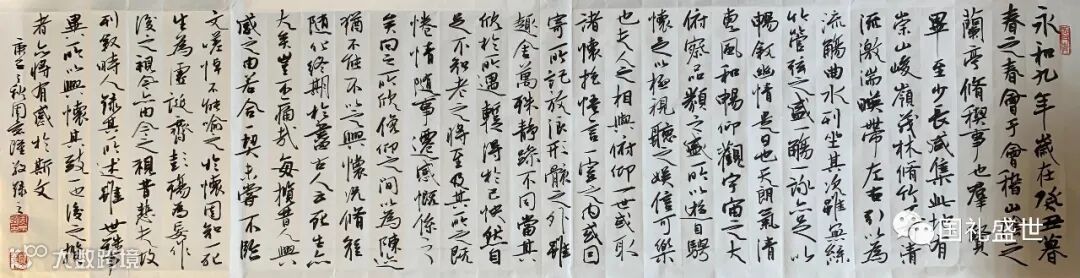 永和九年歲在癸丑暮
春之春會于會稽山之
蘭亭脩禊事也羣賢
畢至少長咸集此地有
崇山峻嶺茂林脩竹清
流激湍暎帶左右引以為
流觴曲水列坐其次雖無絲
竹管弦之盛一觴一詠亦足以
暢敘幽情是日也天朗氣清
惠風和暢仰觀宇宙之大
俯察品類之盛所以遊目騁
懷足以極視聽之娛信可樂
也夫人之相與俯仰一世或取
諸懷抱悟言一室之内或因
寄所託放浪形骸之外雖
趣舍萬殊靜躁不同當其
欣於所遇暫得於己快然自
足不知老之將至及其所之既
惓情隨事遷感慨係之
矣向之所欣俛仰之間以為陳迹
猶不能不以之興懷況脩短
隨化終期於盡古人云死生亦
大矣豈不痛哉每攬昔人興
感之由若合一契未嘗不臨
文嗟悼不能喻之於懷固知一死
生為虛誕齊彭殤為妄作
後之視今亦由今之視昔悲夫故
列敘時人錄其所述雖世殊事
異所以興懷其致一也後之攬
者亦將有感於斯文
国礼盛世
大数跨境